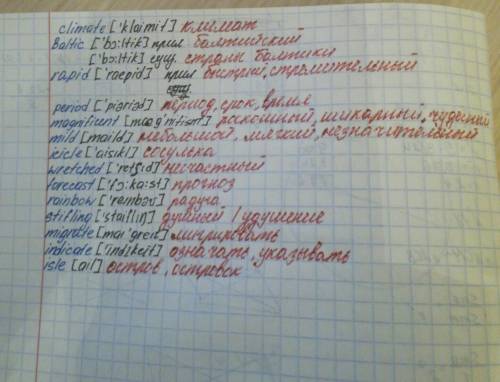 climate ['klaimit] климат
Baltic ['bɔ:ltik] прил балтийский
['bɔ:ltik] сущ. страны Балтики
rapid ['raepid] прил быстрый, стремительный
сущ.
period ['piəriəd] период, срок, время
magnificent [maeg'nifisnt] роскошный, шикарный, чудесный
mild [maild] небольшой, мягкий, незначительный
icicle ['aisikl] сосулька
wretched ['retʃid] несчастный
forecast ['fɔ:ka:st] прогноз
rainbow ['reinbəu] радуга
stifling ['staifliŋ] душный / удушение
migrate [mai'greit] мигрировать
indicate ['indikeit] означать, указывать
isle [ail] остров, островок